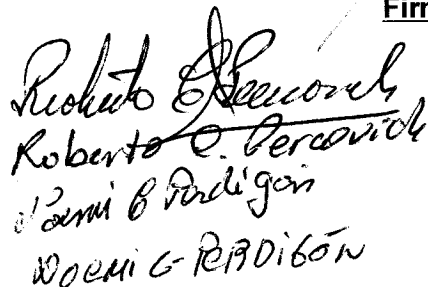 Firm
Roberto C Percovich
Roberto C. Percovich
Noemi G Perdigón
NOEMI G PERDIGÓN